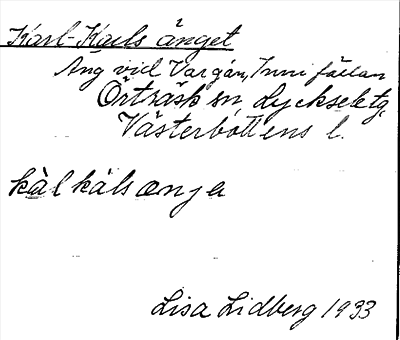 Karl-Karls änget
Äng vid Vargån, Inni fällan
Örträsk sn, Lycksele tg,
Västerbottens l.
kàl kàls ænja
Lisa Lidberg 1933